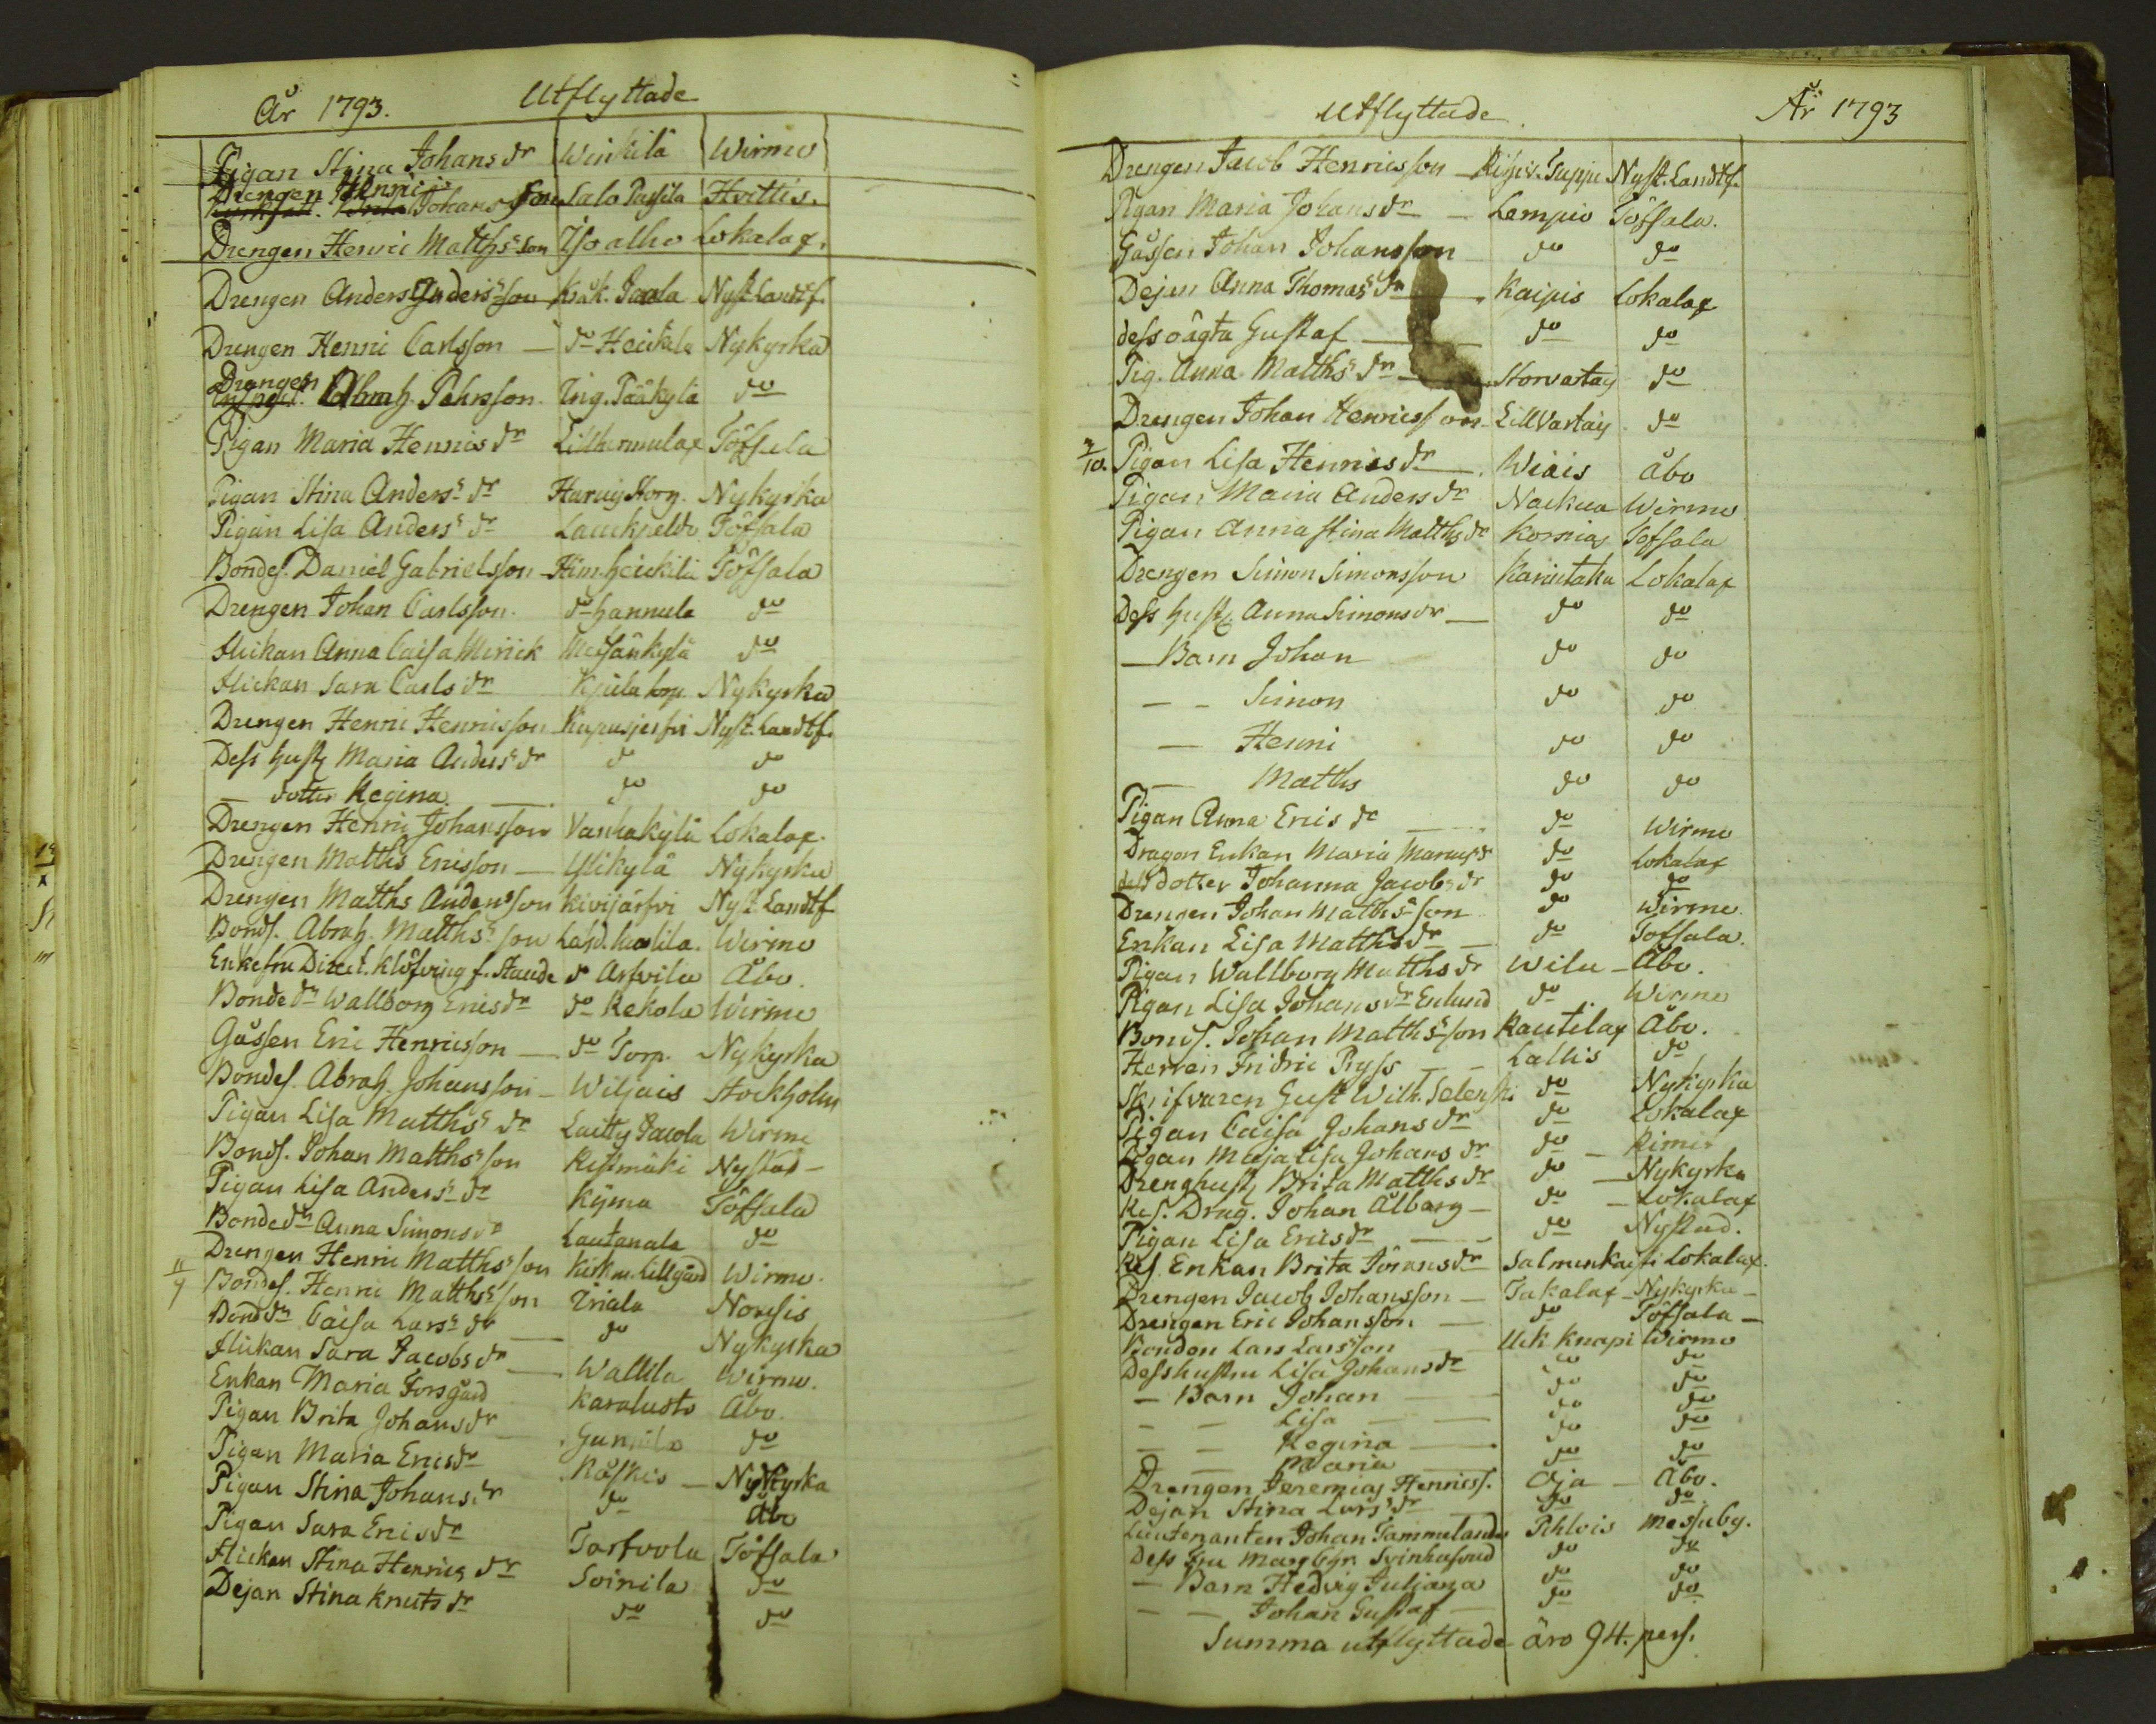 År 1793. Utflyttade
Pigan Stina Johans dr Winkilä Wirmo
Drengen Henric Johansson Salo Passila Hvittis.
Drengen Henric Matthsson Isoalho Lokalax.
Drengen Anders Andersson Kråk. Jaala Nyst. Landtf.
Drengen Henric Carlsson — do Heickilä Nykyrka
Drengen Abrah. Pehrsson Ing. Pääkylä do
Pigan Maria Henrics dr Lillhermulax Töfsala
Pigan Stina Anders dr Nykyrka
Pigan Lisa Anders dr Töfsala
Bondes. Daniel Gabrielsson Him. heickilä Töfsala
Drengen Johan Carlsson do hannula do
Flickan Anna Caisa Mirick Meisänkylä do
Flickan Sara Carls dr Kjula torp. Nykyrka
Drengen Henric Henricsson Nyst. Landtf.
Dess hust. Maria Anders dr do do
— dotter Regina do do
Drengen Henric Johansson Vanhakylä Lokalax.
Drengen Matths Ericsson — Ylikylä Nykyrka
Drengen Matths Andersson Kivijärfvi Nyst. Landtf
Bonds. Abrah. Matths son Wirmo
Enkefru Direct. Klöfving f. Staude do Arfvila Åbo.
Bonde dr Wallborg Erics dr do Rekola Wirmo
Gåssen Eric Henricsson — do Torp. Nykyrka
Bondes. Abrah. Johansson — Wiljais Stockholm
Pigan Lisa Matths dr Laitty Jacola Wirmo
Bonds. Johan Matthsson Ristimäki Nystad —
Pigan Lisa Anders dr Kÿma Töfsala
Bonde dr Anna Simons dr Lautanala do
Drengen Henric Matthsson Kirkm. Lillgård Wirmo.
11/9 Bondes. Henric Matthsson Triala Nousis
Bond dr Caisa Lars dr — do Nykyrka
Flickan Sara Jacobs dr — Wallila Wirmo.
Enkan Maria Forsgård Karalusto Åbo.
Pigan Brita Johans dr Gunnila do
Pigan Maria Erics dr Nykyrka
Pigan Stina Johans dr do Åbo
Pigan Sara Erics dr Tartvola Töfsala
Flickan Stina Henrics dr Soinila do
Dejan Stina Knuts dr do do
Utflyttade År 1793
Drengen Jacob Henricsson — Nyst. Landtf.
Pigan Maria Johans dr — Lempio Töfsala.
Gåssen Johan Johansson do do
Dejan Anna Thomas dr Kaipis Lokalax
dess oägta Gustaf — do do
Pig. Anna Matths dr — Storvartay do
Drengen Johan Henricsson Lillvartay do
7/10. Pigan Lisa Henrics dr Wiais Åbo
Pigan Maria Anders dr Naukua Wirmo
Pigan Anna Stina Matths dr Kornias Töfsala
Drengen Simon Simonsson Kanintaka Lokalax
Dess hust. Anna Simons dr — do do
— Barn Johan do do
— — Simon do do
— Henric do do
— Matths do do
Pigan Anna Erics dr do Wirmo
Dragon Enkan Maria do Lokalax
dess dotter Johanna Jacobs dr do do
Drengen Johan Matthsson do Wirmo.
Enkan Lisa Matths dr — do Töfsala.
Pigan Wallborg Matths dr Wilu — Åbo.
Pigan Lisa Johans dr Enlund do Wirmo
Bonds. Johan Matthsson Rautilax Åbo.
Herren Fridric Pryss — Lallis do
Skrifvaren Gust. Wilh. do Nykyrka
Pigan Caisa Johans dr do Lokalax
Pigan Maja Lisa Johans dr do — Rimit
Drenghust. Brita Matths dr do — Nykyrka
Res. Drag. Johan Ålbarg — do — Lokalax
Pigan Lisa Erics dr — do Nystad.
Res. Enkan Brita Jörans dr Lokalax.
Drengen Jacob Johansson — Takalax — Nykyrka —
Drengen Eric Johansson — do Töfsala —
Bonden Lars Larsson Uck Knapi Wirmo
Dess hustru Lisa Johans dr do do
— Barn Johan — do do
— — Lisa — do do
— — Regina — do do
— — Maria — do do
Drengen Jeremias Henricss. Oja — Åbo.
Dejan Stina Lars dr do do
Lieutenanten Johan Tammelander Pehlois Messuby.
Dess fru do do
— Barn Hedvig Juliana do do
— — Johan Gustaf — do do
Summa utflyttade äro 94. pers.